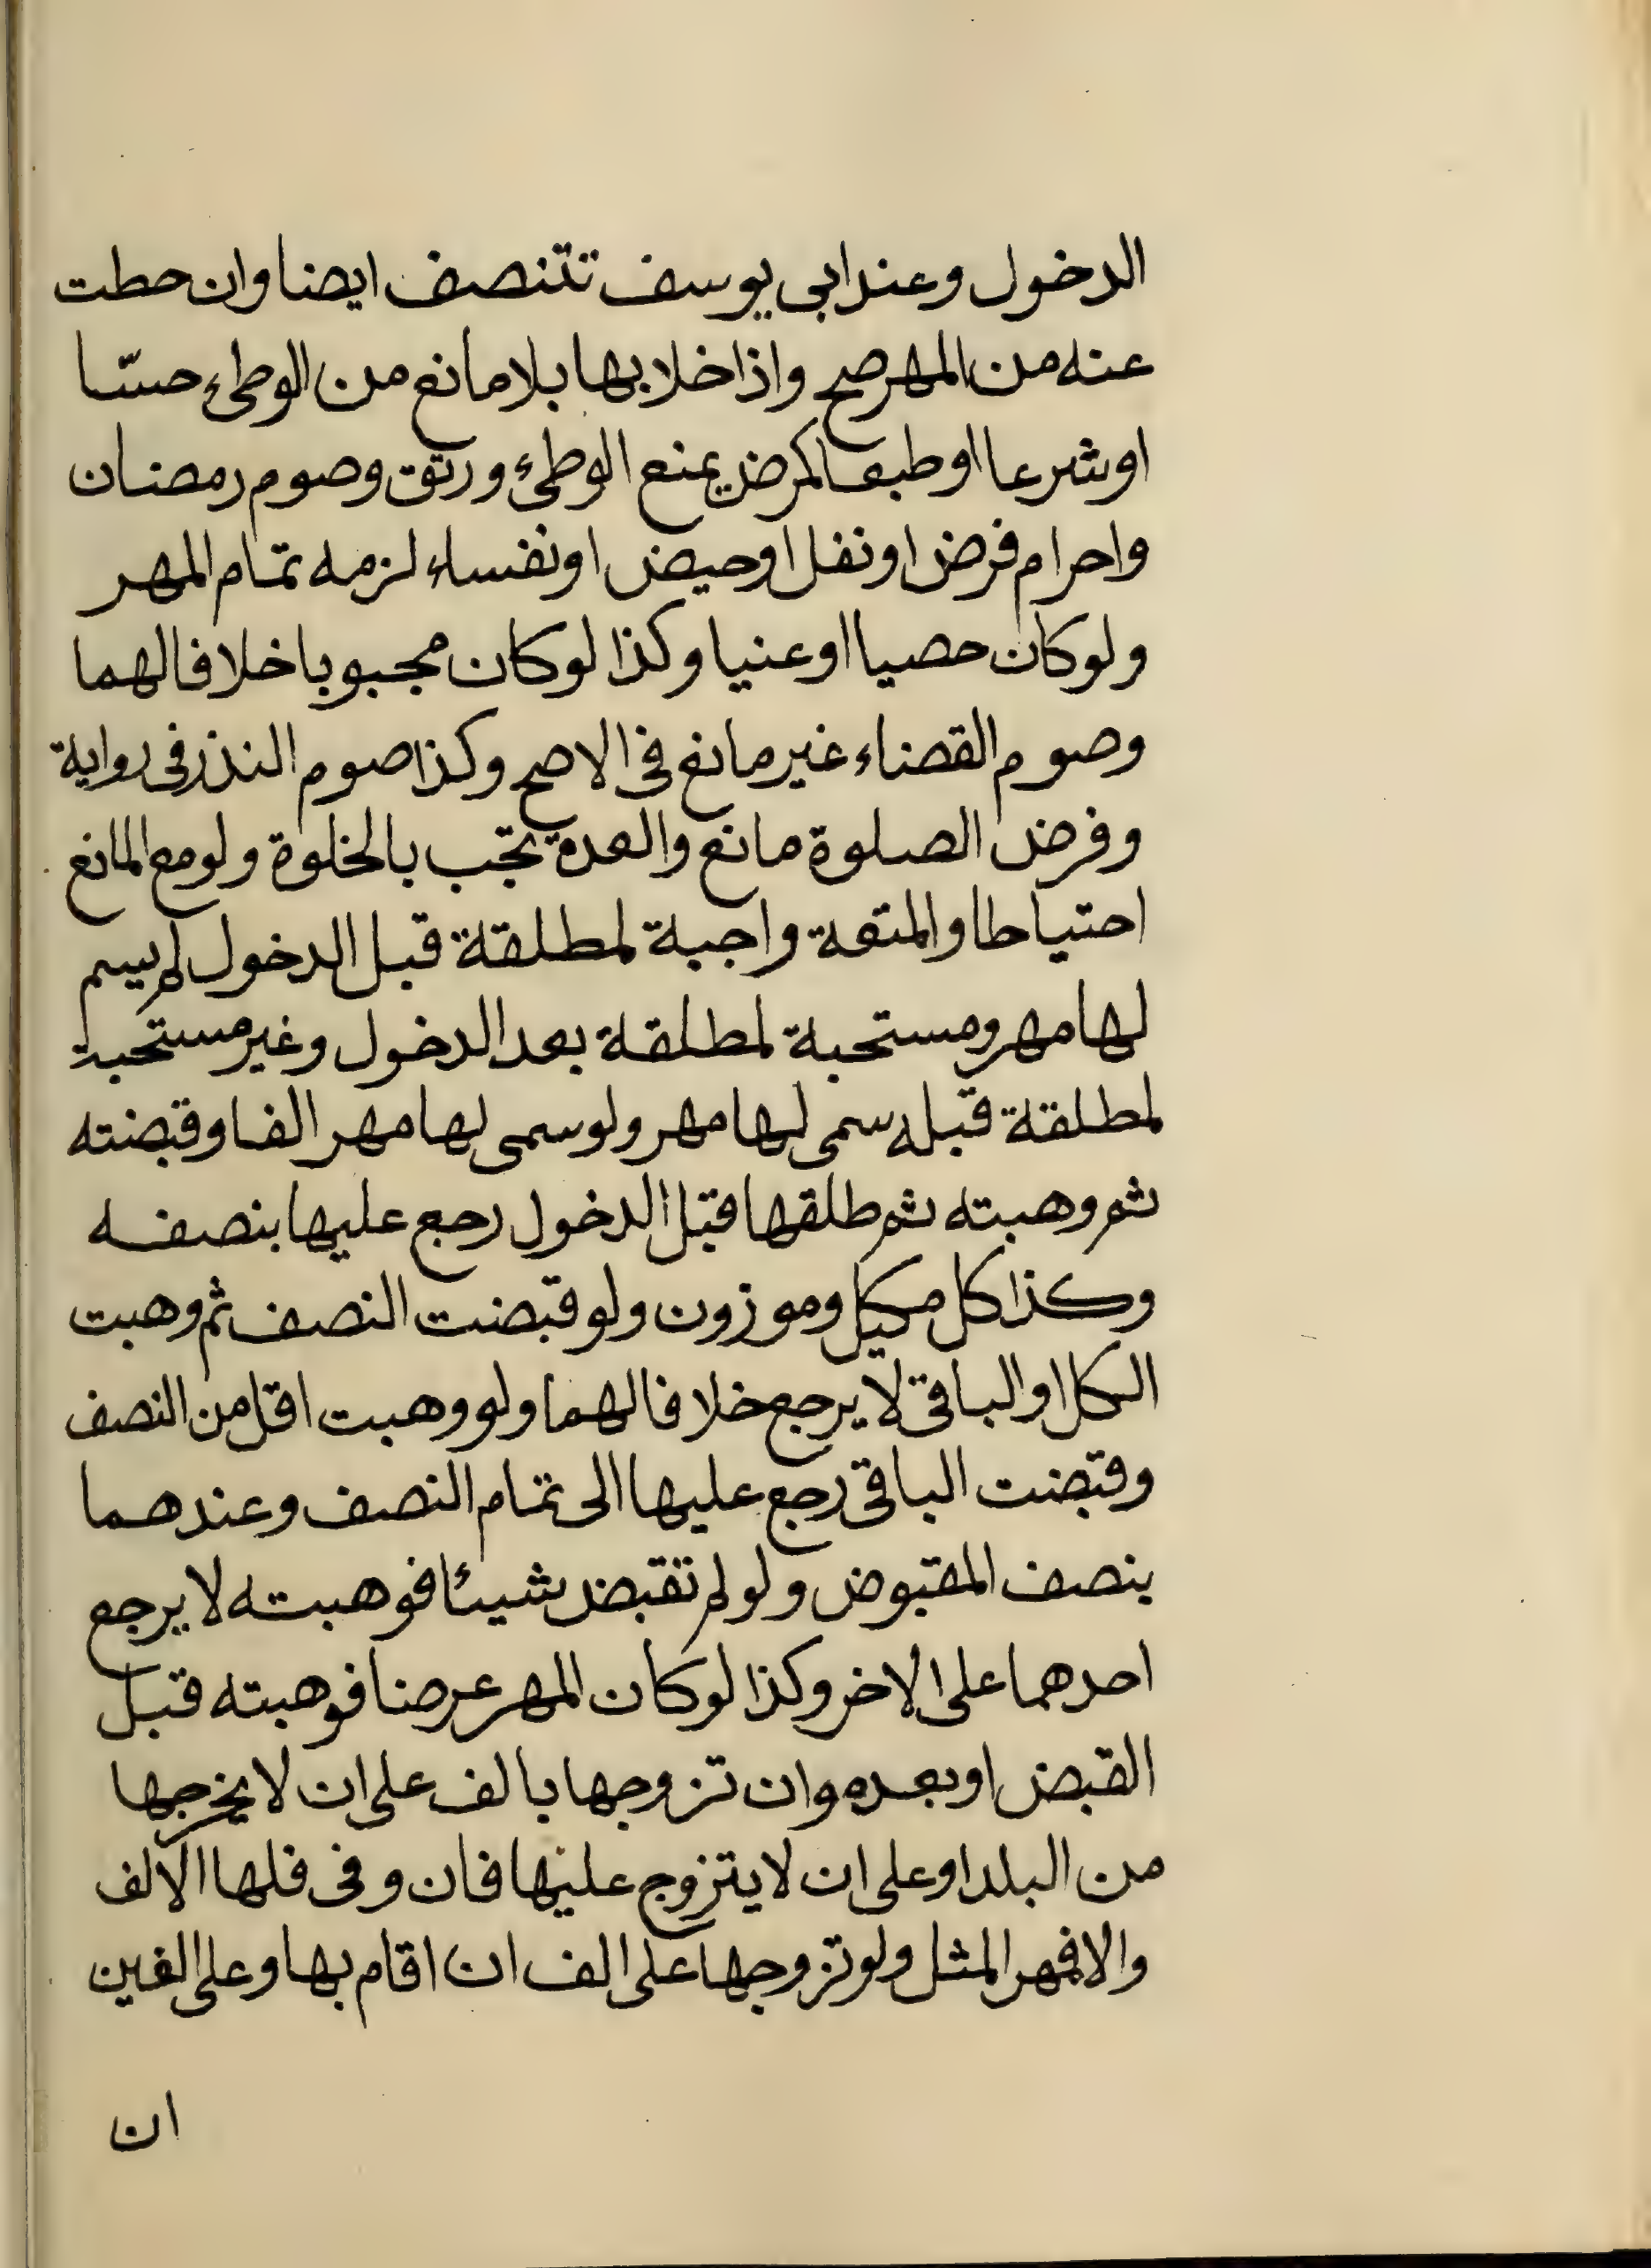 الدخول وعند ابى يوسف تتنصف ايضا وان حطت
عنه من المهر صح واذا خلا بها بلا مانع من الوطىء حسّا
او شرعا او طبعا كمرض يمنع الوطىء ورتق وصوم رمضان
واحرام فرض او نفل او حيض او نفساء لزمه تمام المهر
ولو كان حصيا او عنيا وكذا لو كان مجبوبا خلافا لهما
وصوم القضاء غير مانع فى الاصح وكذا صوم النذر فى رواية
وفرض الصلوة مانع والعدة تجب بالخلوة ولو مع المانع
احتياطا والمتعة واجبة لمطلقة قبل الدخول لم يسم
لها مهر ومستحبة لمطلقة بعد الدخول وغير مستحبة
لمطلقة قبله سمى لها مهر ولو سمى لها مهر الفا وقبضته
ثم وهبته ثم طلقها قبل الدخول رجع عليها بنصفه
وكذا كل مكيل وموزون ولو قبضت النصف ثم وهبت
الكل او الباقى لا يرجع خلافا لهما ولو وهبت اقل من النصف
وقبضت الباقى رجع عليها الى تمام النصف وعندهما
بنصف المقبوض ولو لم تقبض شيئا فوهبته لا يرجع
احدهما على الاخر وكذا لو كان المهر عرضا فوهبته قبل
القبض او بعده وان تزوجها بالف على ان لا يخرجها
من البلد او على ان لا يتزوج عليها فان وفى فلها الالف
والا فمهر المثل ولو تزوجها على الف ان اقام بها وعلى الفين
ان